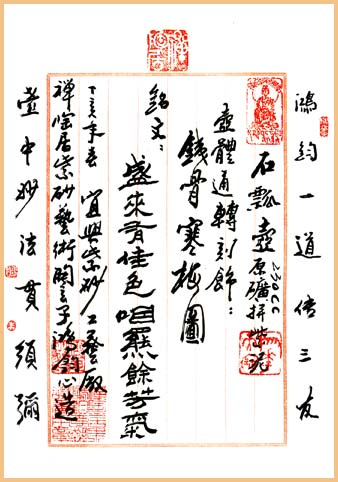 鴻鈞一道傳三友
石瓢壺 原礦拼紫泥 230cc
壺體通轉刻飾：
銕骨寒梅圖
銘文：
盛來有佳色咽罷餘芳氣
丁亥年春 宜興紫砂工藝廠
禪陶居紫砂藝術 玄子鴻鈞心造
壺中妙法貫須彌